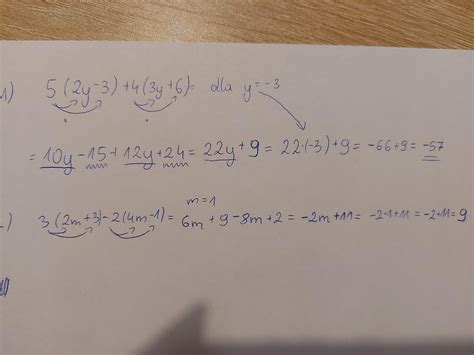 1) 5(2y-3)+4(3y+6)= dla y=-3
= 10y-15+12y+24 = 22y+9 = 22·(-3)+9 = -66+9 = -57
m=1
) 3(2m+3)-2(4m-1)= 6m+9-8m+2 = -2m+11 = -2·1+11 = -2+11 = 9